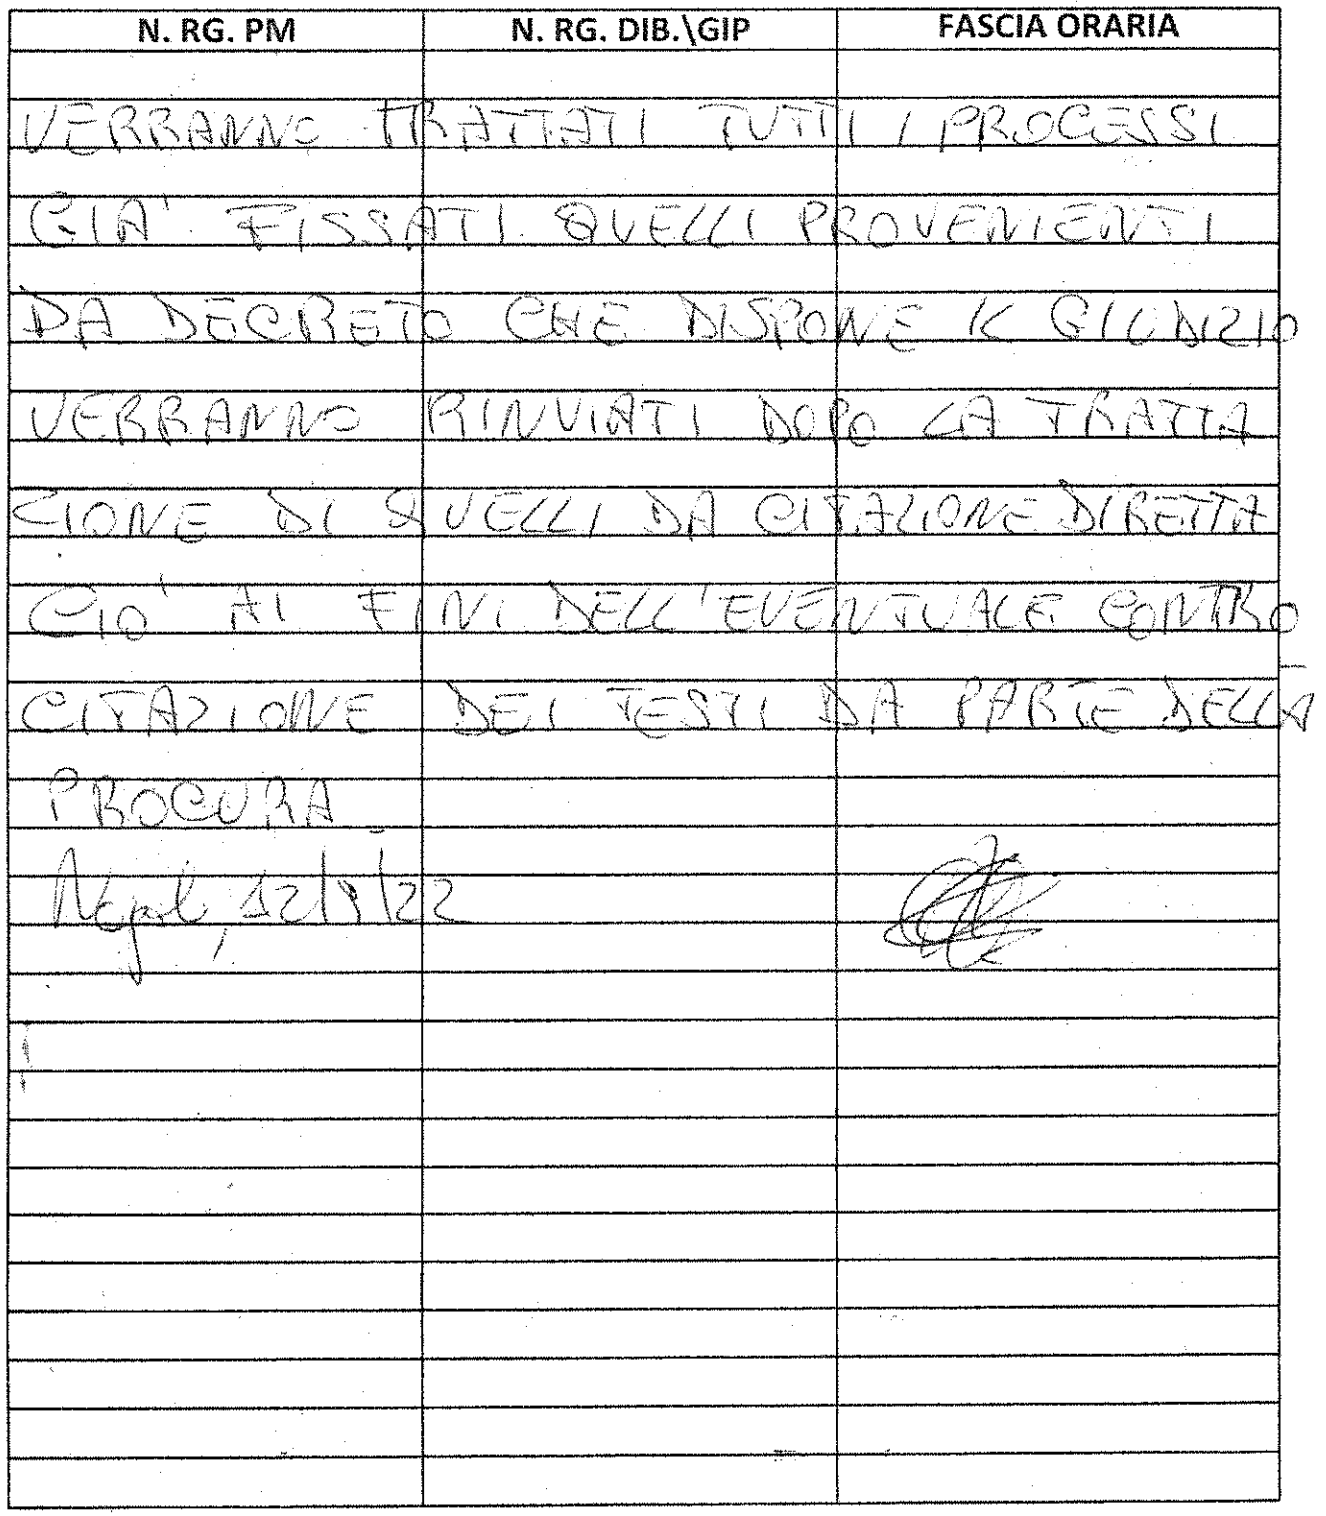 N. RG. PM N. RG. DIB.\GIP FASCIA ORARIA
VERRANNO TRATTATI TUTTI I PROCESSI
GIA' FISSATI. QUELLI PROVENIENTI
DA DECRETO CHE DISPONE IL GIUDIZIO
VERRANNO RINVIATI DOPO LA TRATTA
ZIONE DI QUELLI DA CITAZIONE DIRETTA
CIO' AI FINI DELL'EVENTUALE CONTRO
CITAZIONE DEI TESTI DA PARTE DELLA
PROCURA